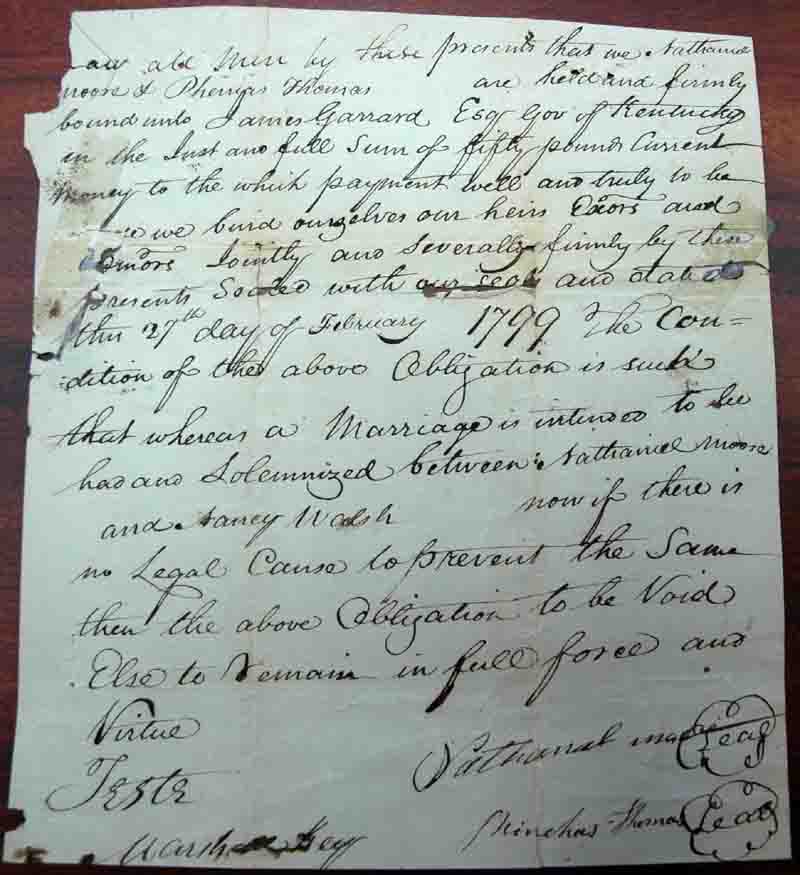 all Men by these presents that we Nathaniel
moore & Phenias Thomas are held and firmly
bound unto James Garrard Esqr Gov of Kentucky
in the Just and full Sum of fifty pounds Current
Money to the which payment well and truly to be
we bind ourselves our heirs Exors and
Admors Jointly and Severally firmly by these
presents Sealed with our seals and dated
this 27th day of February 1799 The Con=
dition of the above Obligation is such
that whereas a Marriage is intended to be
had and Solemnized between Nathaniel moore
and Nancy Walsh now if there is
no Legal Cause to prevent the Same
then the above Obligation to be Void
Else to Remain in full force and
Virtue
Teste Nathanal Seal
Marshall Key Phinehas Thomas Seal